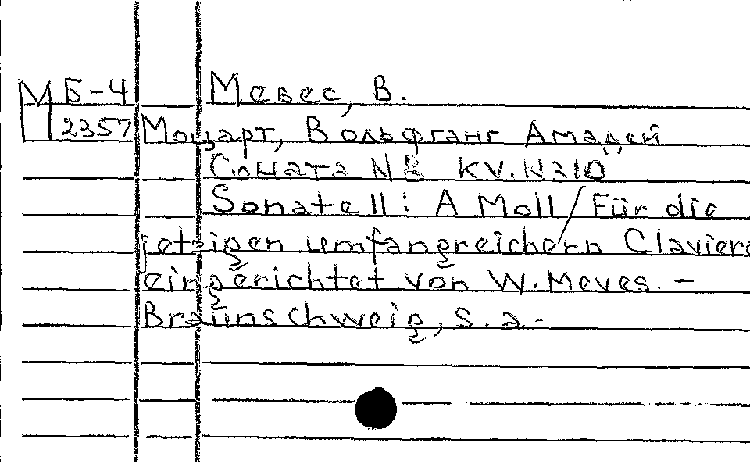 М Б-4 Мевес, В.
2357 Моцарт, Вольфганг Амадей
Соната № KV.N310
Sonate II: A Moll / Für die
jetzigen umfangreichern Claviere
eingerichtet von W. Meves. -
Braunschweig, s. a.-